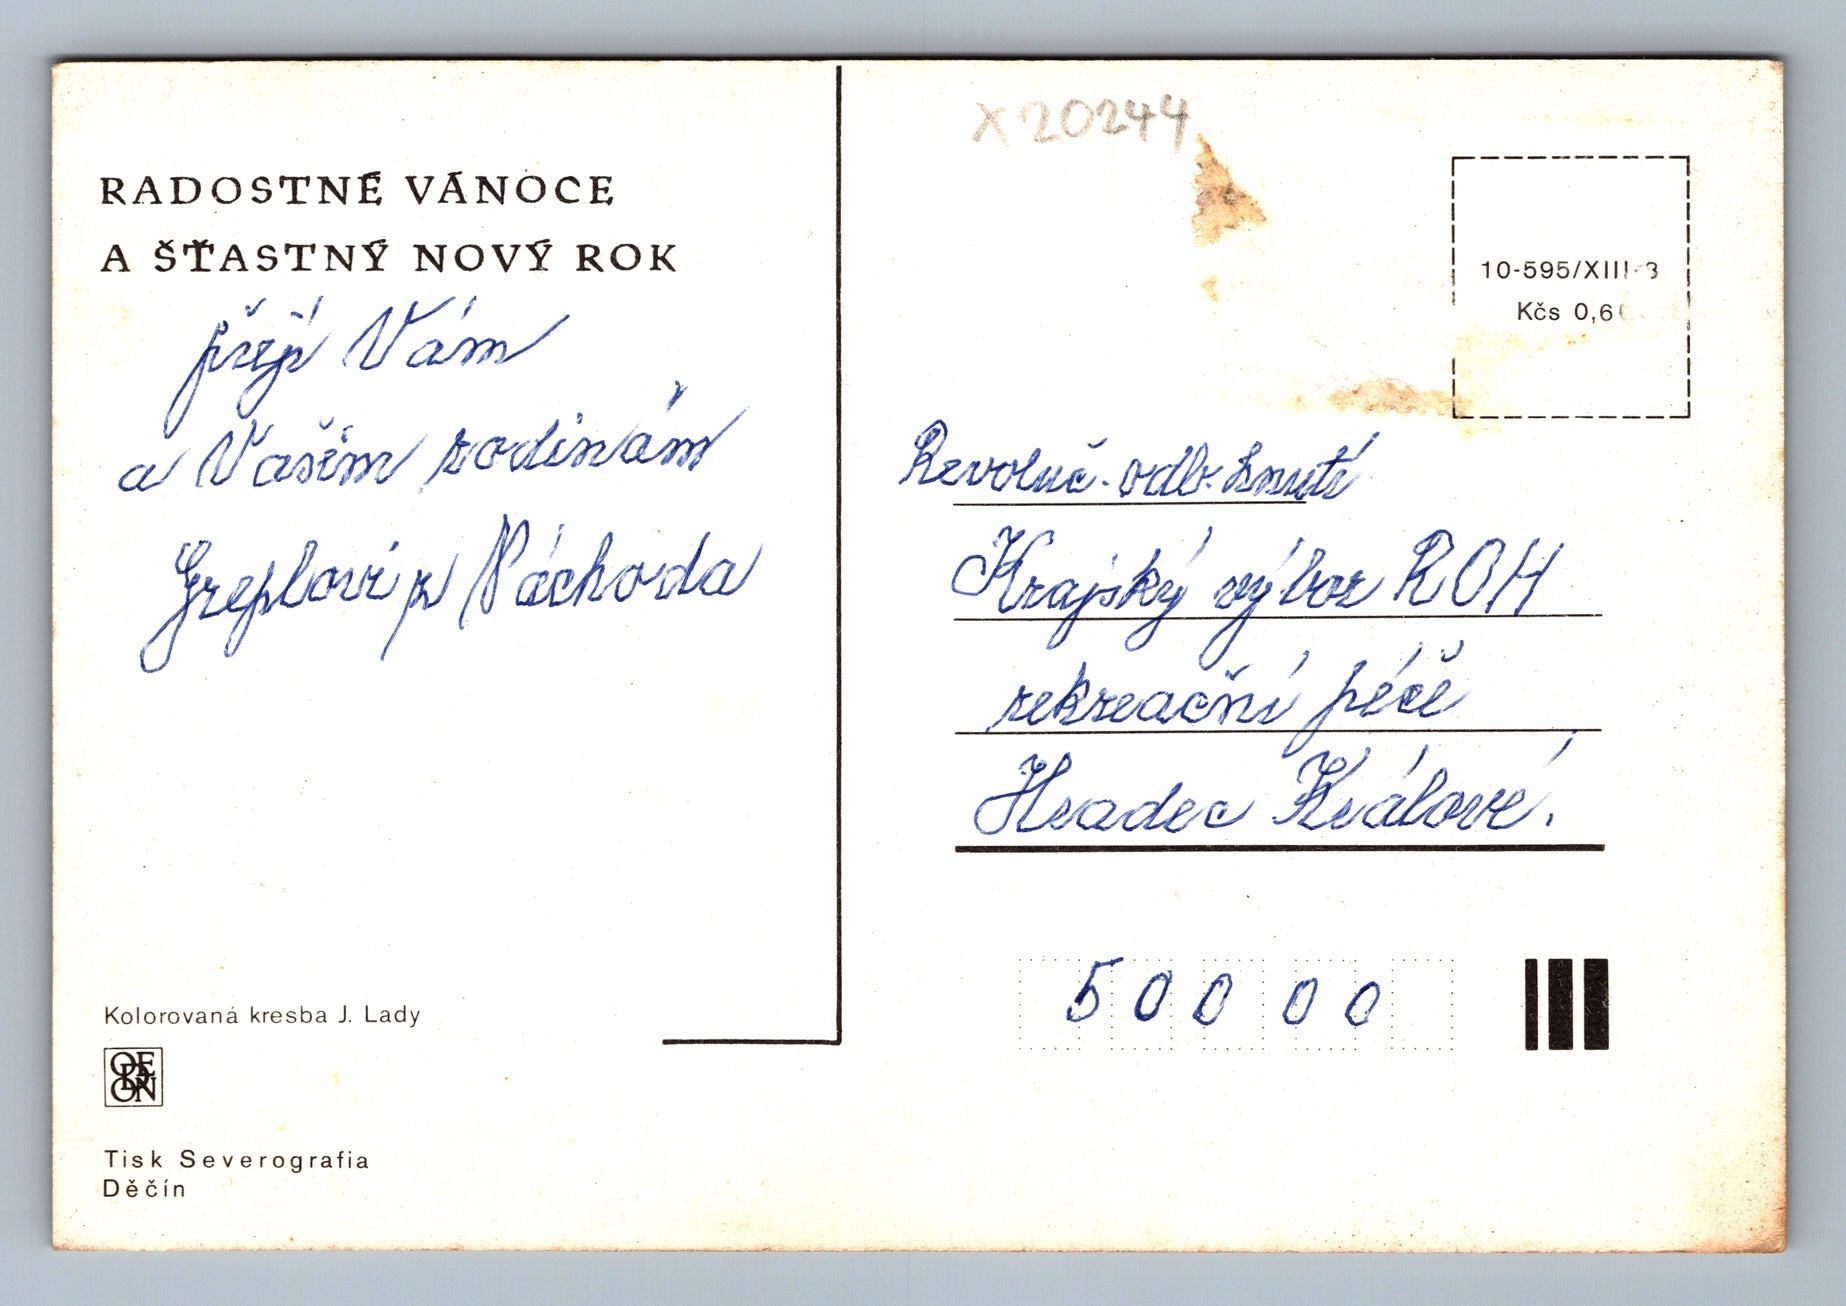 RADOSTNÉ VÁNOCE
A ŠŤASTNÝ NOVÝ ROK
přejí Vám
a Vašim rodinám
Greplovi z Náchoda
Kolorovaná kresba J. Lady
ODEON
Tisk Severografia
Děčín
X 20244
10-595/XIII-3
Kčs 0,6
Revoluč. odb. hnutí
Krajský výbor ROH
rekreační péče
Hradec Králové.
50000